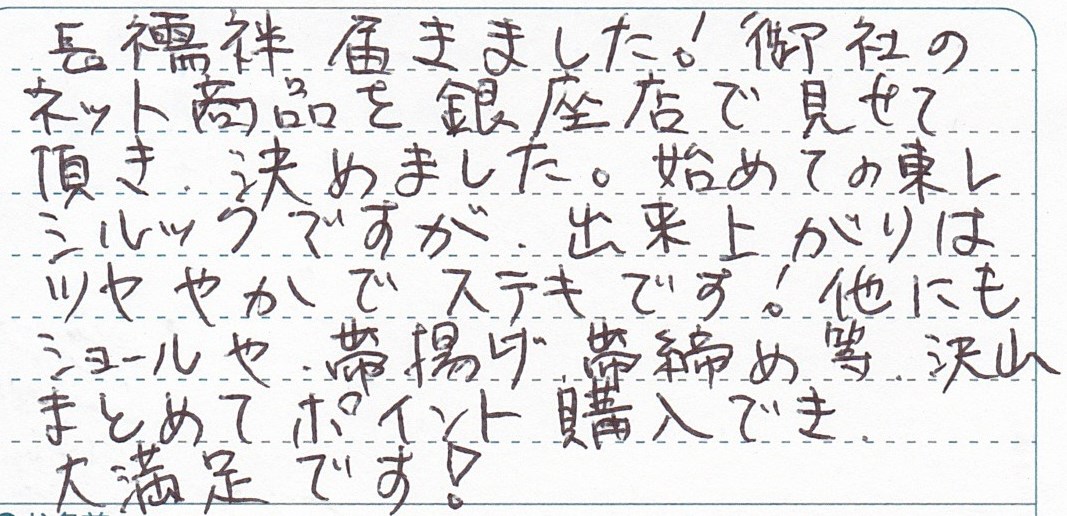 長襦袢届きました!御社の
ネット商品を銀座店で見せて
頂き、決めました。始めての東レ
シルックですが、出来上がりは
ツヤやかでステキです!他にも
ショールや、帯揚げ、帯締め等、沢山
まとめてポイント購入でき、
大満足です!